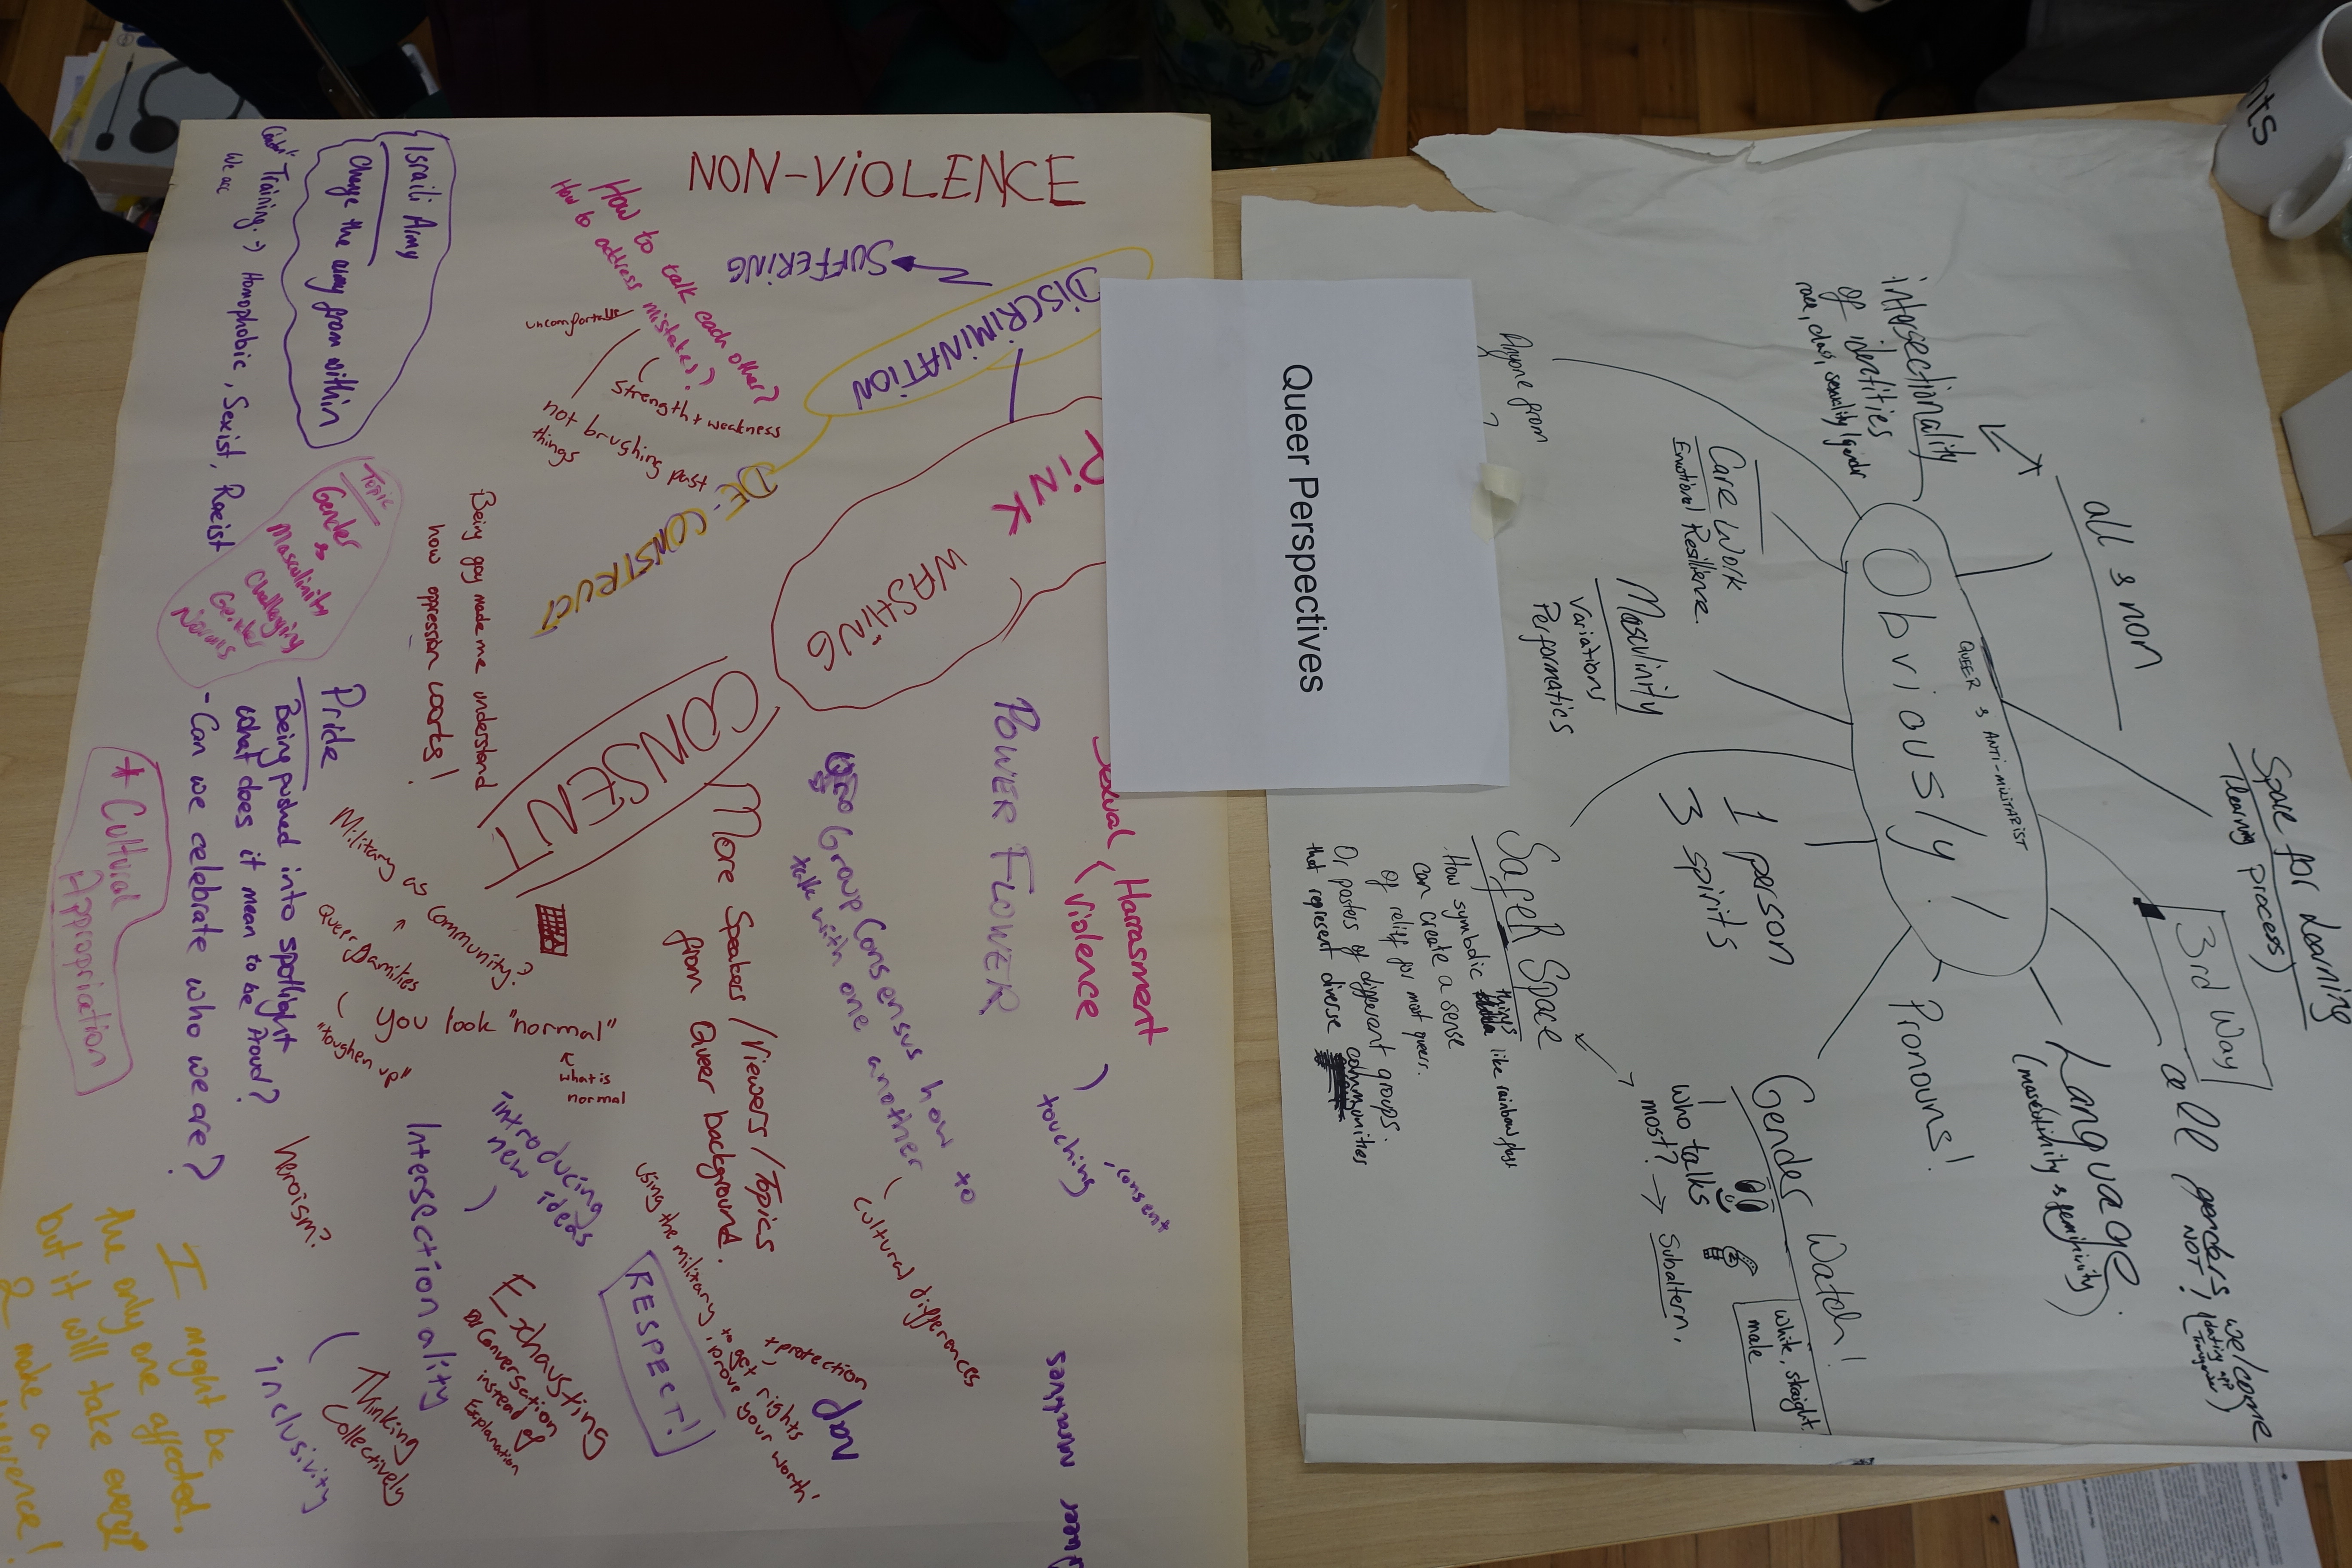 NON-ViOLENCE
DiSCRiMiNATiON
SUFFERiNG
DE-CONSTRUCT
PiNK
WASHiNG
How to talk each other?
How to address mistakes?
uncomfortable
strength + weakness
not brushing past
things
Israili Army
Change the army from within
Training.
We are
Homophobic, Sexist, Racist
Topic
Gender
&
Masculinity
Challenging
Gender
Norms
Being gay made me understand
how oppression works!
CONSENT
POWER FLOWER
Harrasment
Violence
touching
consent
Group Consensus how to
talk with one another
cultural differences
More Speakers/Viewers/Topics
from Queer background.
Pride
- Being pushed into spotlight
what does it mean to be Proud?
- Can we celebrate who we are?
+ Cultural
Appropriation
Military as Community?
Queer Families
You look "normal"
"toughen up"
what is
normal
introducing
new ideas
Intersectionality
inclusivity
Thinking
Collectively
heroism?
Exhausting
Conversation
instead of
Explanation
RESPECT!
using the military to get rights
+ protection
, prove your worth.
narratives
I might be
the only one affected.
but it will take every1
2 make a
Queer Perspectives
Obviously!
QUEER & ANTI-MILITARIST
intersectionality
of identities
race, class, sexuality/gender
all & non
Anyone from
?
Care Work
Emotional Resilience.
Masculinity
Variations
Performatics
1 person
3 spirits
Safer Space
. How symbolic things like rainbow flags
can create a sense
of relief for most queers.
Or posters of different groups.
that represent diverse communities
Gender Watch!
who talks
most?
Subaltern,
White, straight.
male
Pronouns!
Language
(masculinity & feminity)
all genders welcome
NOT!
(dating app
Transgender)
3rd Way
Space for Learning
(learning process)
nts